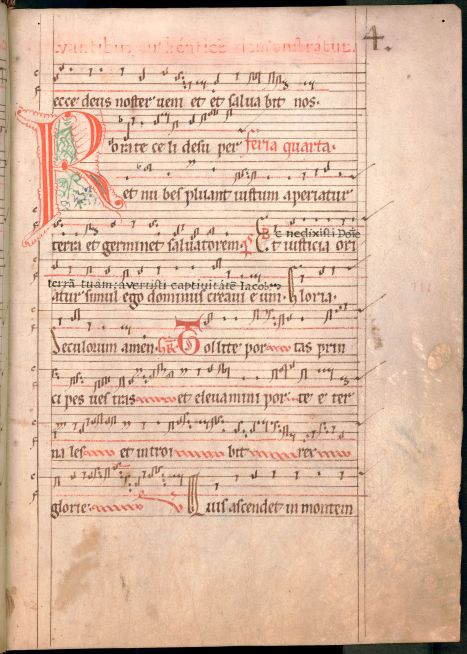 4.
ecce deus noster veni et et salua bit nos.
R orate ce li desu per feria quarta.
et nu bes pluant iustum aperiatur
B e nedixisti Dñe
terra et germinet saluatorem. Et iusticia ori
terrā tuam: avertisti captivitatē Iacob
atur simul ego dominus creaui e um. Gloria.
Seculorum amen. Tollite por tas prin
ci pes ues tras et eleuamini por te e ter
na les et introi bit rex
glorie. Quis ascendet in montem